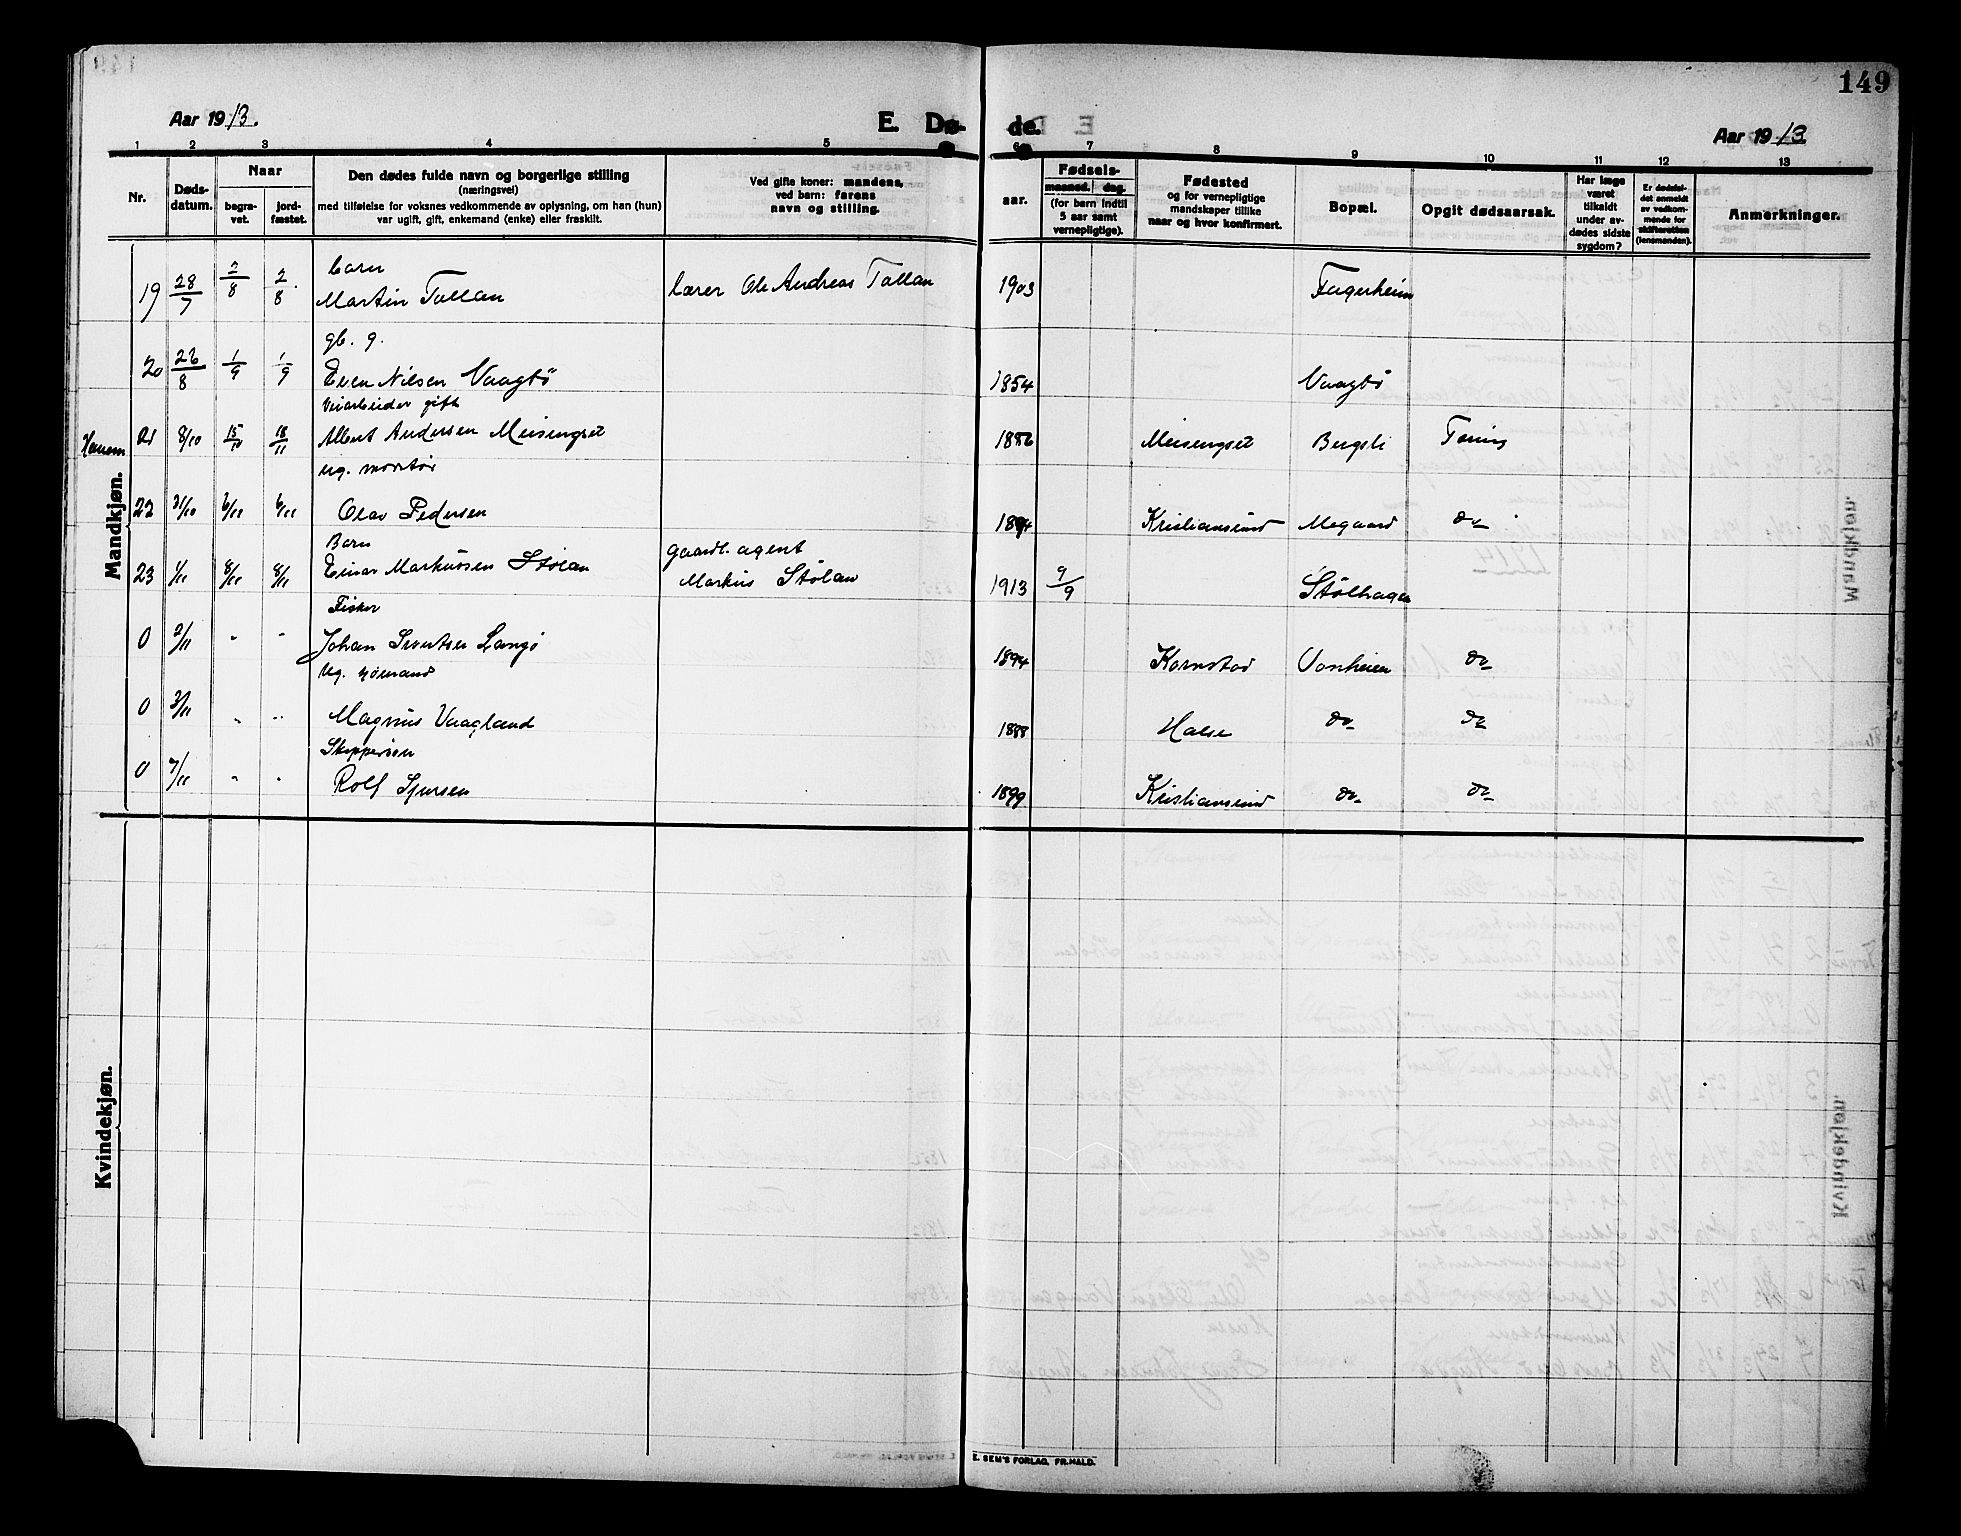 149
Aar 1913.
E. Dø- de.
Aar 1913
1 2 3 4 5 6 7 8 9 10 11 12 13
Nr.
Døds-
datum.
Naar
begra-
vet.
jord-
fæstet.
Den dødes fulde navn og borgerlige stilling
(næringsvei)
med tilføielse for voksnes vedkommende av oplysning, om han (hun)
var ugift, gift, enkemand (enke) eller fraskilt.
Ved gifte koner: mandens,
ved barn: farens
navn og stilling.
aar.
Fødsels-
maaned. dag.
(for barn indtil
5 aar samt
vernepligtige).
Fødested
og for vernepligtige
mandskaper tillike
naar og hvor konfirmert.
Bopæl.
Opgit dødsaarsak.
Har læge
været
tilkaldt
under av-
dødes sidste
sygdom?
Er dødsfal-
det anmeldt
av vedkom-
mende for
skifteretten
(lensmanden).
Anmerkninger.
Mandkjøn.
barn
19 28/7 2/8 2/8 Martin Tollan lærer Ole Andreas Tollan 1903 Fagerheim
gb. g.
20 26/8 1/9 1/9 Even Nilsen Vaagbø 1854 Vaagbø
Veiarbeider gift
21 8/10 15/10 18/11 Albert Andersen Meisingset 1886 Meisingset Bergsli
ug. montør
22 31/10 6/11 6/11 Olav Pedersen 1894 Kristiansund Megaard do
Barn gaardb. agent
23 1/11 8/11 8/11 Einar Markussen Stølan Markus Stølan 1913 9/9 Stølhagen
Fisker
0 2/11 " " Johan Sivertsen Langø 1894 Kornstad Vonheien do
ug. sømand
0 3/11 " " Magnus Vaagland 1888 Halse do do
Skippersøn
0 7/11 " " Rolf Sjursen 1899 Kristiansund do do
Kvindekjøn.
E. SEM'S FORLAG, FR.HALD.